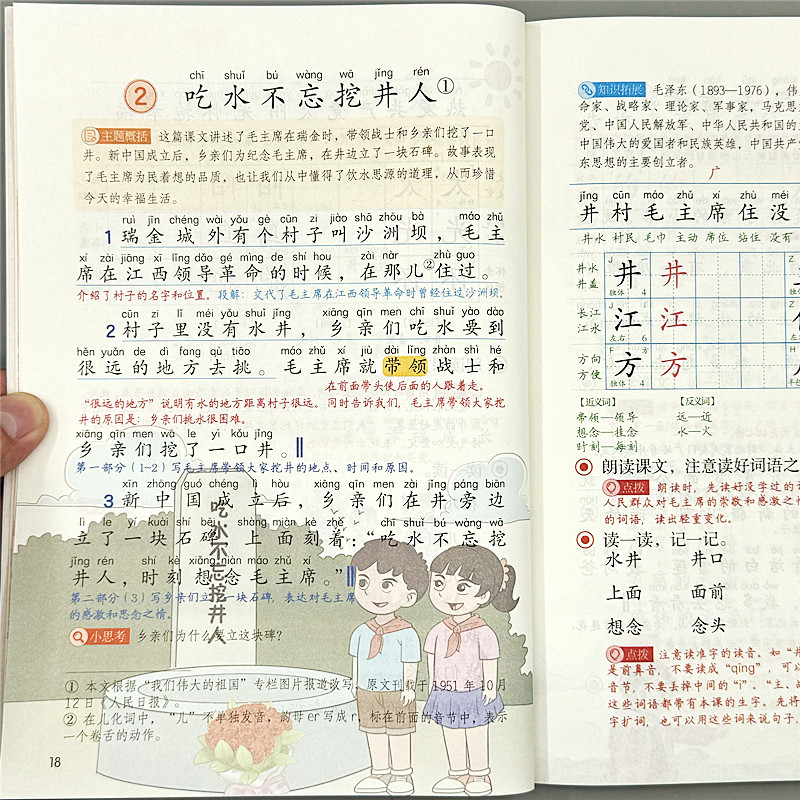 chī shuǐ bú wàng wā jǐng rén
② 吃水不忘挖井人①
主题概括 这篇课文讲述了毛主席在瑞金时，带领战士和乡亲们挖了一口
井。新中国成立后，乡亲们为纪念毛主席，在井边立了一块石碑。故事表现
了毛主席为民着想的品质，也让我们从中懂得了饮水思源的道理，从而珍惜
今天的幸福生活。
ruì jīn chéng wài yǒu gè cūn zi jiào shā zhōu bà máo zhǔ
1 瑞金城外有个村子叫沙洲坝，毛主
xí zài jiāng xī lǐng dǎo gé mìng de shí hou zài nàr zhù guo
席在江西领导革命的时候，在那儿②住过。
介绍了村子的名字和位置。段解：交代了毛主席在江西领导革命时曾经住过沙洲坝。
cūn zi lǐ méi yǒu shuǐ jǐng xiāng qīn men chī shuǐ yào dào
2 村子里没有水井，乡亲们吃水要到
hěn yuǎn de dì fang qù tiāo máo zhǔ xí jiù dài lǐng zhàn shì hé
很远的地方去挑。毛主席就带领战士和
在前面带头使后面的人跟着走。
“很远的地方”说明有水的地方距离村子很远。同时告诉我们，毛主席带领大家挖
井的原因是：乡亲们挑水很困难。
xiāng qīn men wā le yì kǒu jǐng
乡亲们挖了一口井。‖
第一部分（1-2）写毛主席带领大家挖井的地点、时间和原因。
xīn zhōng guó chéng lì hòu xiāng qīn men zài jǐng páng biān
3 新中国成立后，乡亲们在井旁边
lì le yí kuài shí bēi shàng miàn kè zhe chī shuǐ bú wàng wā
立了一块石碑，上面刻着：“吃水不忘挖
jǐng rén shí kè xiǎng niàn máo zhǔ xí
井人，时刻想念毛主席。”‖
第二部分（3）写乡亲们立了一块石碑，表达对毛主席
的感激和思念之情。
吃水不忘挖井人
小思考 乡亲们为什么要立这块碑？
① 本文根据“我们伟大的祖国”专栏图片报道改写，原文刊载于1951年10月
12日《人民日报》。
② 在儿化词中，“儿”不单独发音，韵母er写成r，标在前面的音节中，表示
一个卷舌的动作。
18
知识拓展 毛泽东（1893—1976），伟
命家、战略家、理论家、军事家，马克思
党、中国人民解放军、中华人民共和国的
中国伟大的爱国者和民族英雄，中国共产
东思想的主要创立者。
广
jǐng cūn máo zhǔ xí zhù méi
井村毛主席住没
井水 村民 毛巾 主动 席位 站住 没有
井水 井盖 J 井 井 独体 4
长江 江水 J 江 江 左右 6
方向 方便 F 方 方 独体 4
【近义词】 【反义词】
带领—领导 远—近
想念—挂念 水—火
时刻—每刻
朗读课文，注意读好词语之
点拨 朗读时，先读好没学过的
人民群众对毛主席的崇敬和感激之
的词语，读出轻重变化。
读一读，记一记。
水井 井口
上面 面前
想念 念头
点拨 注意读准字的读音。如“井
是前鼻音，不要读成“qìng”，可
音节，不要丢掉中间的“i”。“主、
这些词语都带有本课的生字。先将
字扩词，也可以用这些词来说句子，